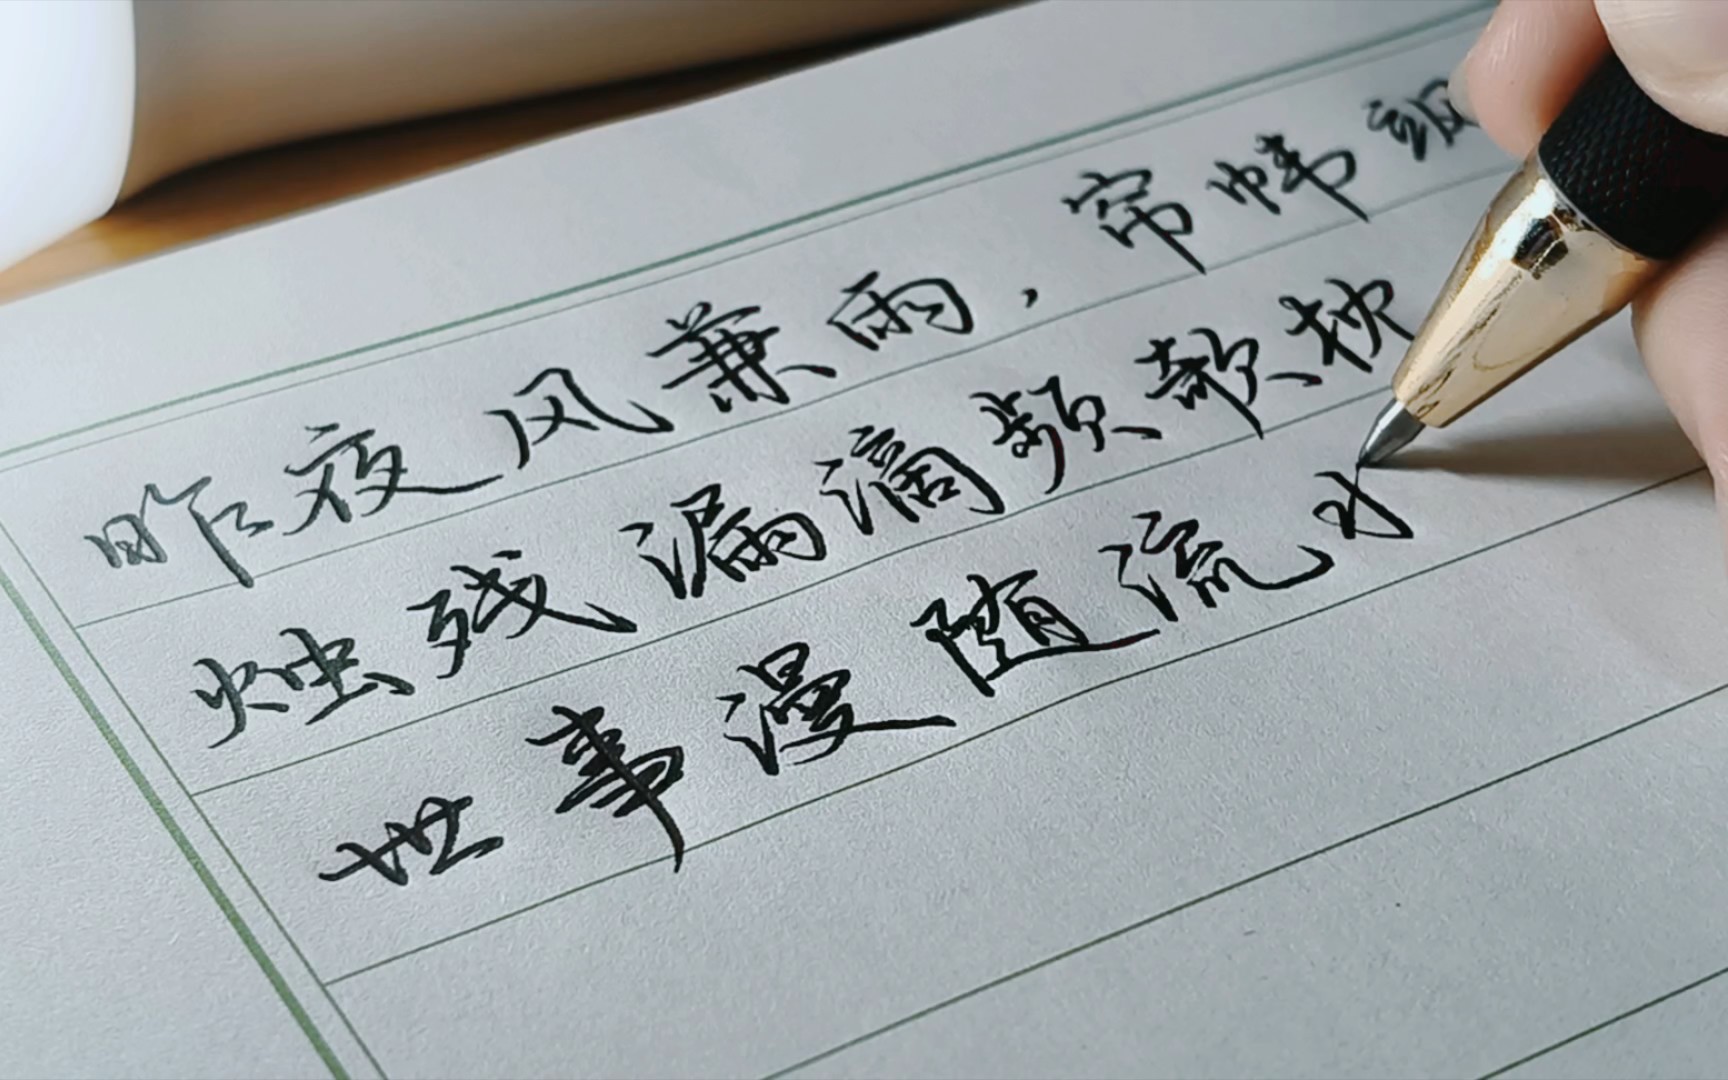 昨夜风兼雨，帘帏飒
烛残漏滴频欹枕
世事漫随流水